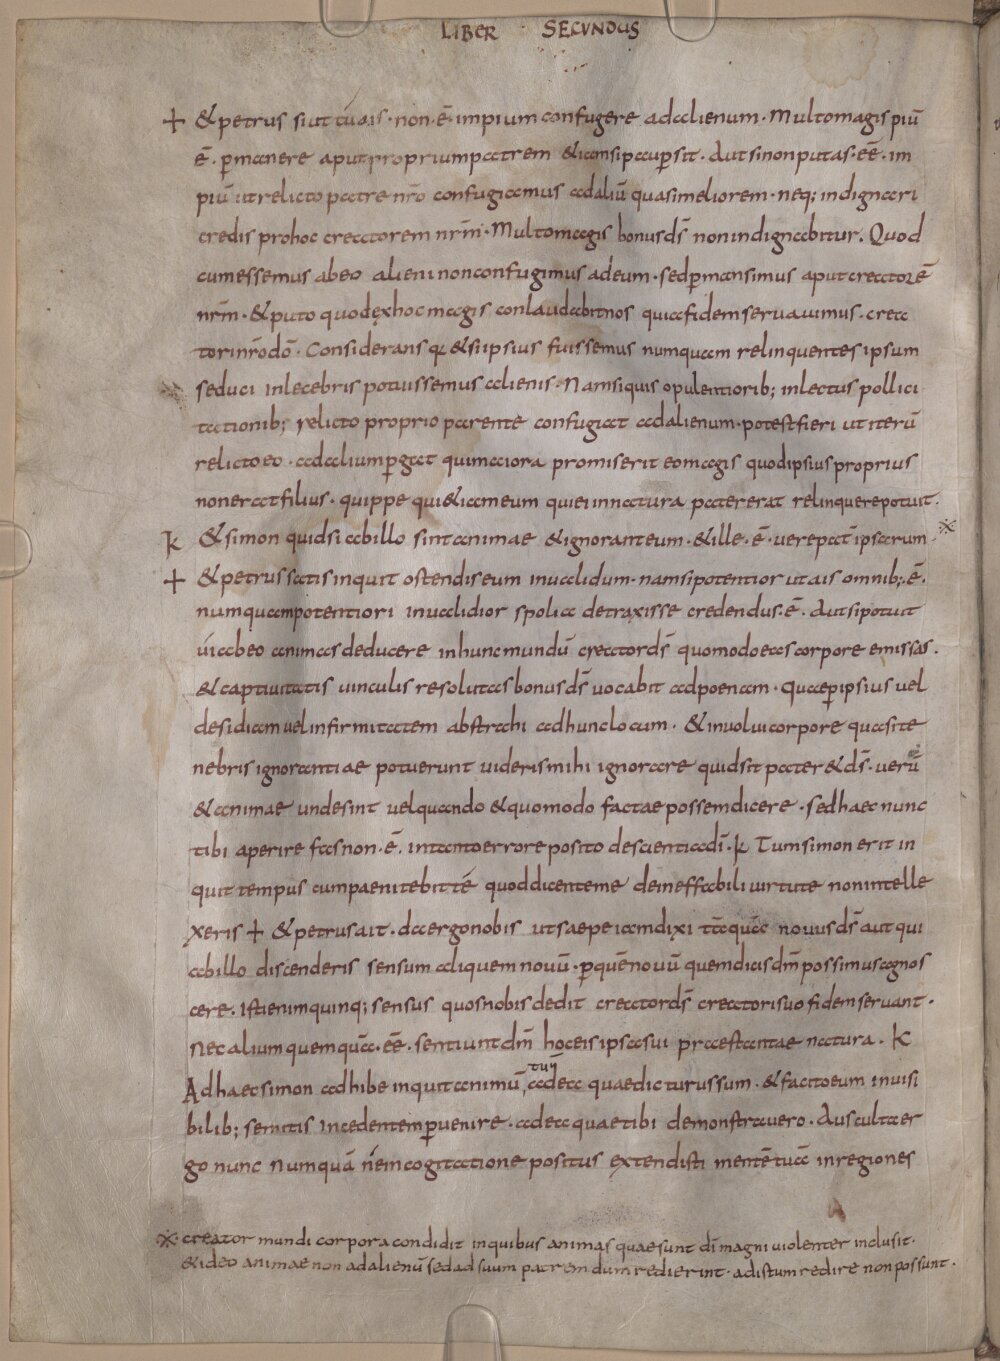 LIBER SECUNDUS
+ & petrus sicut tu ais · non · ē · impium confugere ad alienum · Multo magis piū
ē · pmanere aput proprium patrem & iam si pauper sit · Aut si non putas · eē · im
piū ut relicto patre nr̄o confugiamus ad aliū quasi meliorem · neq; indignari
credis pro hoc creatorem nr̄m · Multo magis bonus ds̄ non indignabitur . Quod
cum essemus ab eo alieni non confugimus ad eum · sed pmansimus aput creatorē
nr̄m · & puto quod ęx hoc magis conlaudabit nos quia fidem servavimus · crea
tori nr̄o dō · Considerans q & si ipsius fuissemus numquam relinquentes ipsum
seduci inlecebris potuissemus alienis · Nam si quis opulentiorib; inlectus pollici
tationib; relicto proprio parente confugiat ad alienum · potest fieri ut iterū
relicto eo · ad alium pgat qui maiora promiserit eo magis quod ipsius proprius
non erat filius · quippe qui & iam eum qui ei in natura pater erat relinquere potuit .
k & simon quid si ab illo sint animae & ignorant eum · & ille · ē · vere pat̄ ipsarum ※
+ & petrus satis inquit ostendis eum invalidum · nam si potentior ut ais omnib; · ē .
numquam potentiori invalidior spolia detraxisse credendus · ē . Aut si potuit
ui ab eo animas deducere in hunc mundū creator ds̄ quomodo eas corpore emissas .
& captivitatis vinculis resolutas bonus ds̄ vocabit ad poenam · Quae p ipsius vel
desidiam vel infirmitatem abstrahi ad hunc locum · & involui corpore quasi te
nebris ignorantiae potuerunt videris mihi ignorare quid sit pater & ds̄ · verū
& animae unde sint vel quando & quomodo factae possem dicere · sed haec nunc
tibi aperire fas non · ē . in tanto errore posito de scientia dī · k Tum simon erit in
quit tempus cum paenitebit té quod dicente me de ineffabili virtute non intelle
xeris + & petrus ait · da ergo nobis ut saepe iam dixi tāquā novus ds̄ aut qui
ab illo discenderis sensum aliquem novū · p quē novū quem dicis dm̄ possimus agnos
cere . Isti enim quinq; sensus quos nobis dedit creator ds̄ creatori suo fidem servant ·
Nec alium quemquā · eē · sentiunt dm̄ hoc eis ipsa sui praestante natura . K
Ad haec simon adhibe inquit animū tuū ad ea quae dicturus sum · & fac eum invisi
bilib; semitis incedentem pvenire · ad ea quae tibi demonstravero · Ausculta er
go nunc Numquā ném cogitatione positus extendisti mentē tuā in regiones
※ creator mundi corpora condidit in quibus animas quae sunt dī magni violenter inclusit ·
& ideo animae non ad alienū sed ad suum patrem dum redierint · ad istum redire non possunt ·